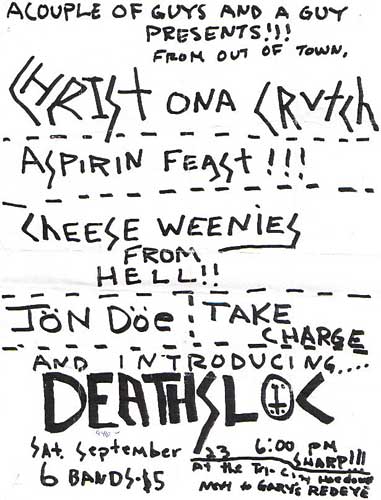 ACOUPLE OF GUYS AND A GUY
PRESENTS!!!
FROM OUT OF TOWN,
CHRIST ONA CRUTCH
ASPIRIN FEAST!!!
CHEESE WEENIES
FROM
HELL!!
JÖN DÖE TAKE
CHARGE
AND INTRODUCING....
DEATHSLOC
SAT. September 23 6:00 PM
SHARP!!!
6 BANDS-$5 At the Tri-City Hoedown
Next to GARY'S REDEYE